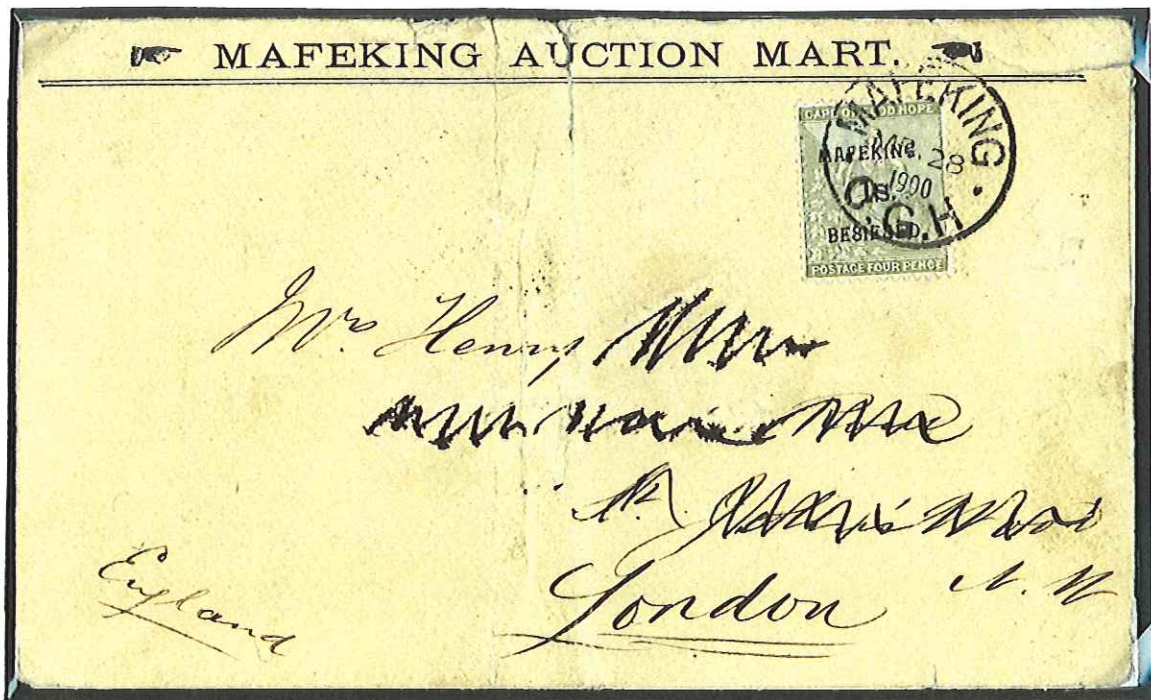 MAFEKING AUCTION MART.
CAPE OF GOOD HOPE
MAFEKING,
1s.
BESIEGED.
POSTAGE FOUR PENCE
MAFEKING
MAR 28
1900
C.G.H
Mrs. Henry
St. John's Wood
London N.W
England